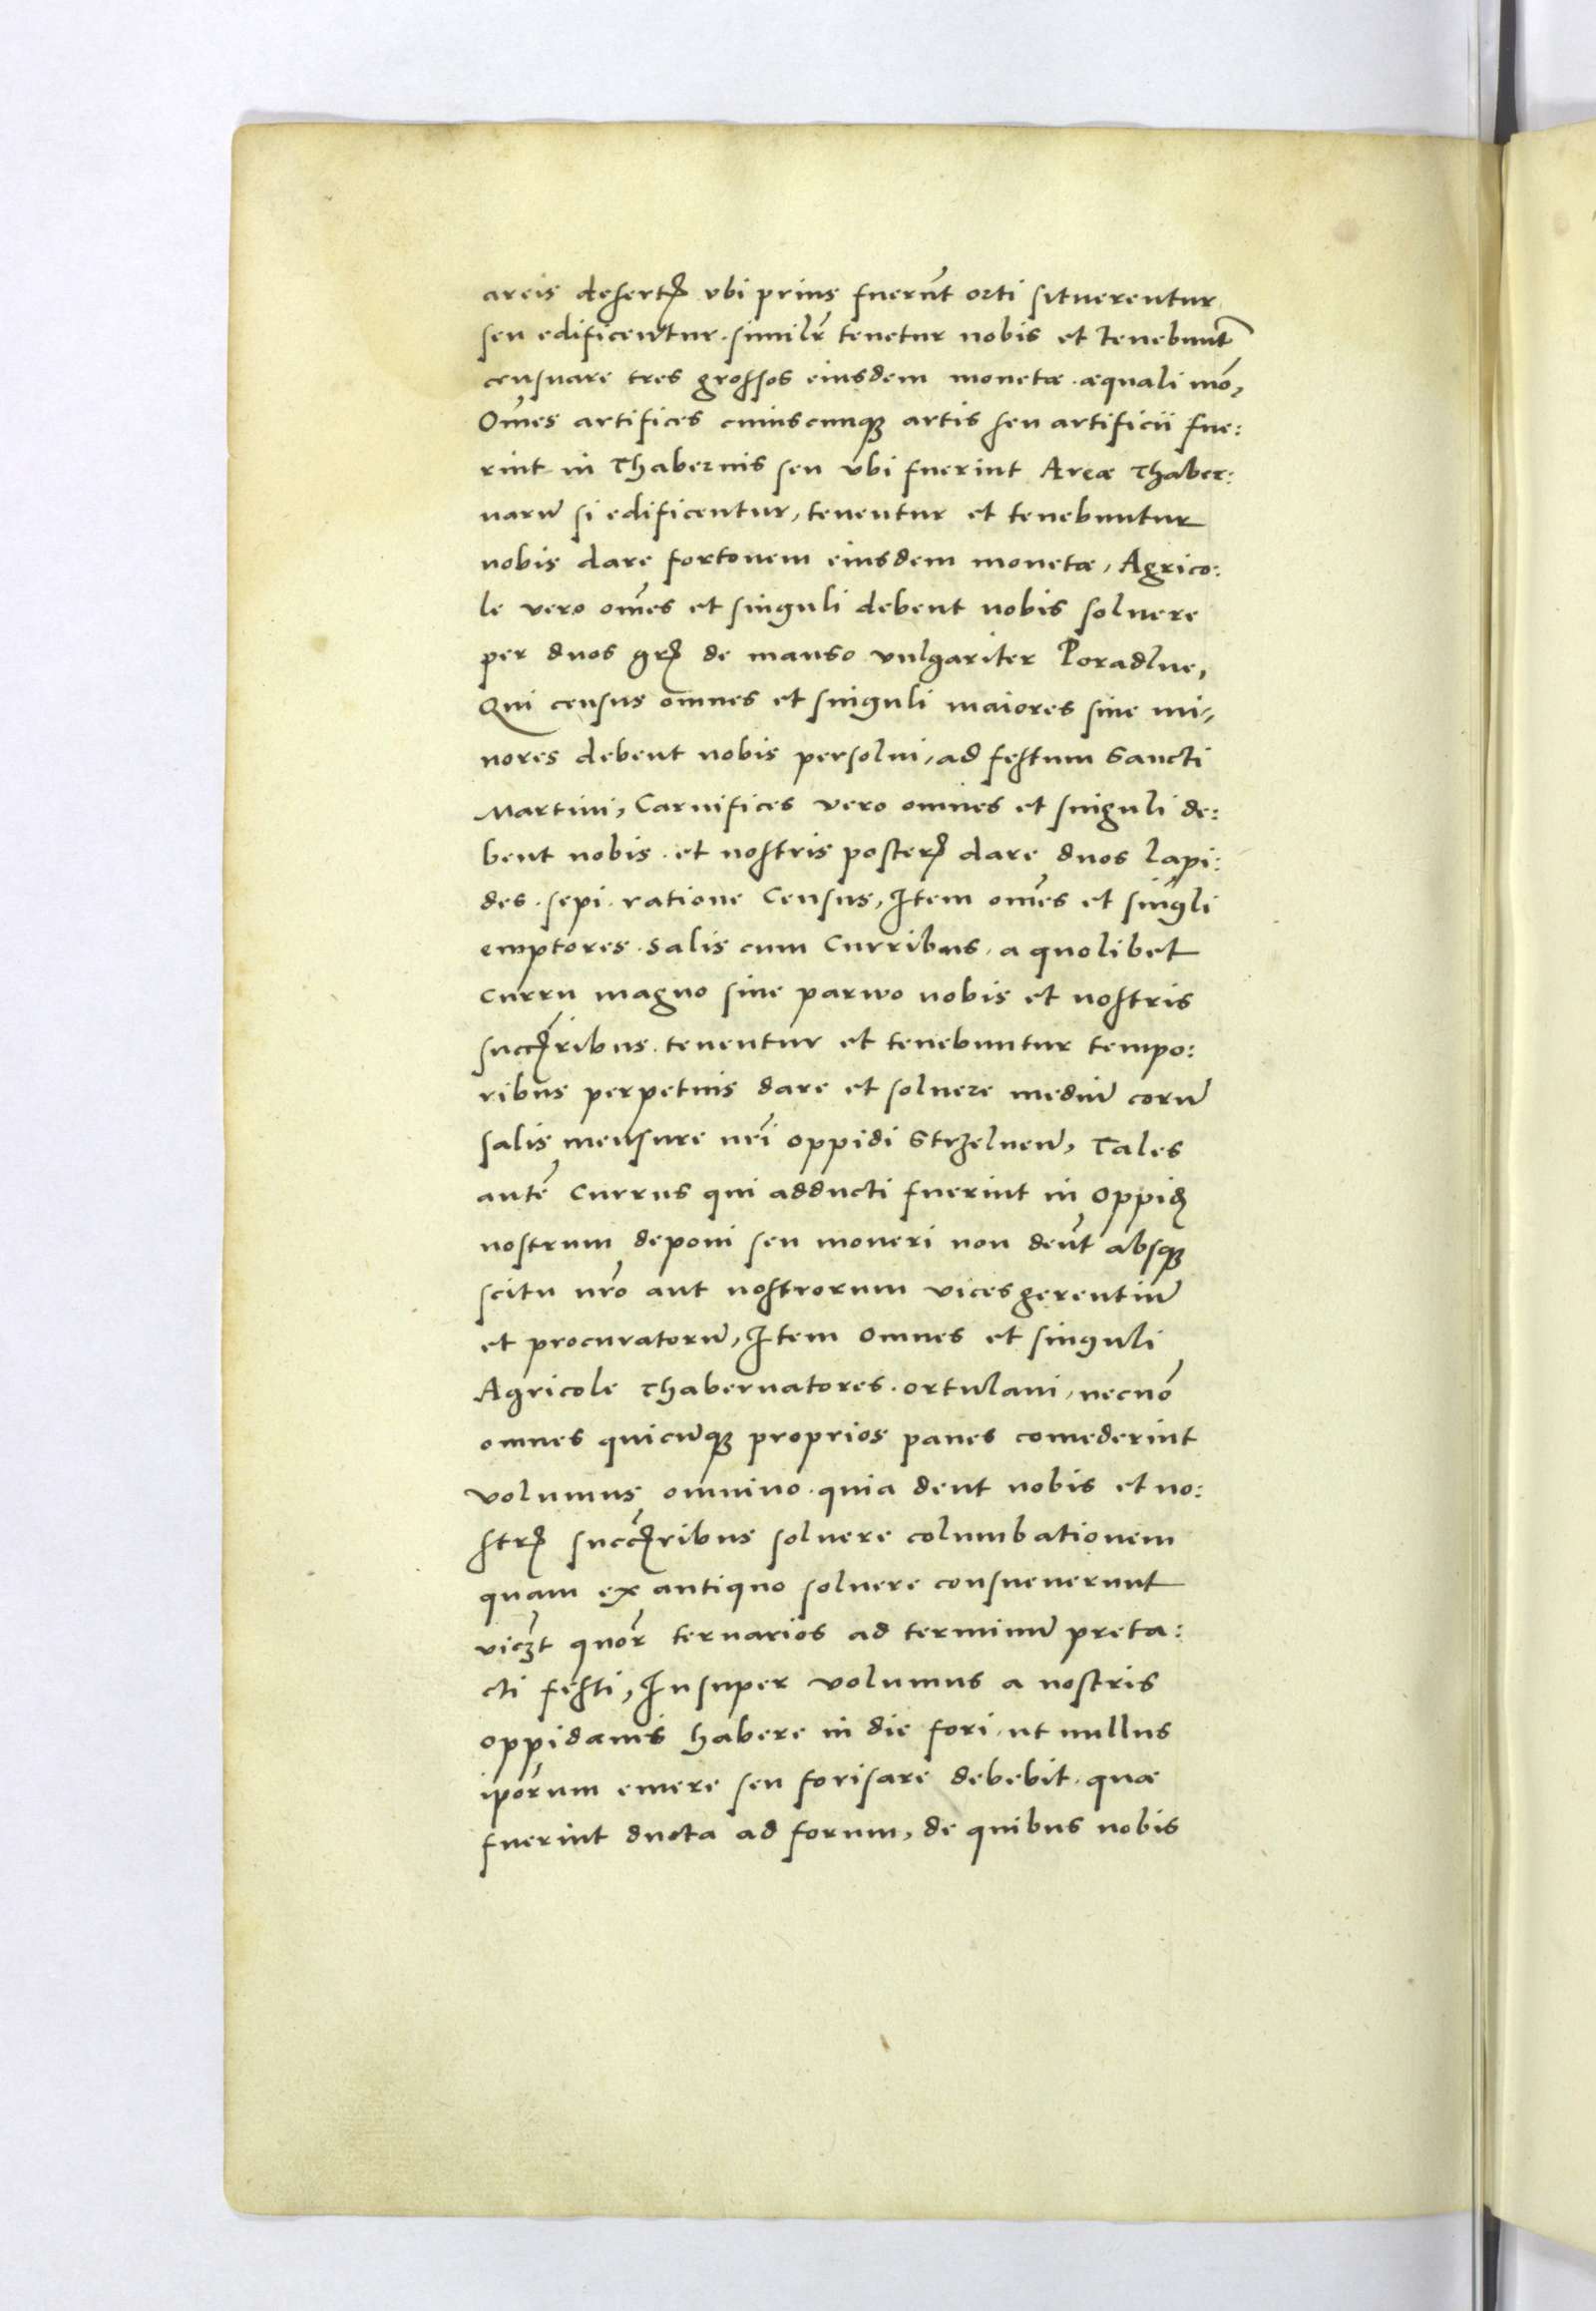 areis desertꝭ vbi prius fuerūt orti situerentur
seu edificentur. simil̄r tenetur nobis et tenebunt̄
censuare tres grossos eiusdem monetæ. æquali mō,
Om̄es artifices cuiuscunqꝫ artis seu artificii fue:
rint in Thabernis seu vbi fuerint Areæ Thaber:
narū si edificentur, tenentur et tenebuntur
nobis dare fortonem eiusdem monetæ, Agrico:
le vero om̄es et singuli debent nobis soluere
per duos grꝭ de manso vulgariter Poradlne,
Qui census omnes et singuli maiores siue mi,
nores debent nobis persolui, ad festum Sancti
Martini, Carnifices vero omnes et singuli de:
bent nobis. et nostris posterꝭ dare duos lapi:
des. sepi. ratione Census, Item om̄es et singli
emptores. Salis cum Curribus. a quolibet
Curru magno siue parwo nobis et nostris
succꝭribus. tenentur et tenebuntur tempo:
ribus perpetuis dare et soluere mediū corū
salis mensure nr̄i oppidi Strzelnen̄, Tales
autē Currus qui adducti fuerint in Oppidꝭ
nostrum deponi seu moueri non deūt absqꝫ
scitu nr̄o aut nostrorum vices gerentiū
et procuratorū, Item Omnes et singuli
Agricole Thabernatores. ortulani, necnō
omnes quicūqꝫ proprios panes comederint
volumus omnino. quia dent nobis et no:
strꝭ succꝭribus soluere columbationem
quam ex antiquo soluere consueuerunt
viczt̄ quor̄ ternarios ad terminū preta:
cti festi, Insuper volumus a nostris
oppidanis habere in die fori, ut nullus
ip̄orum emere seu forisare debebit. quæ
fuerint ducta ad forum, de quibus nobis